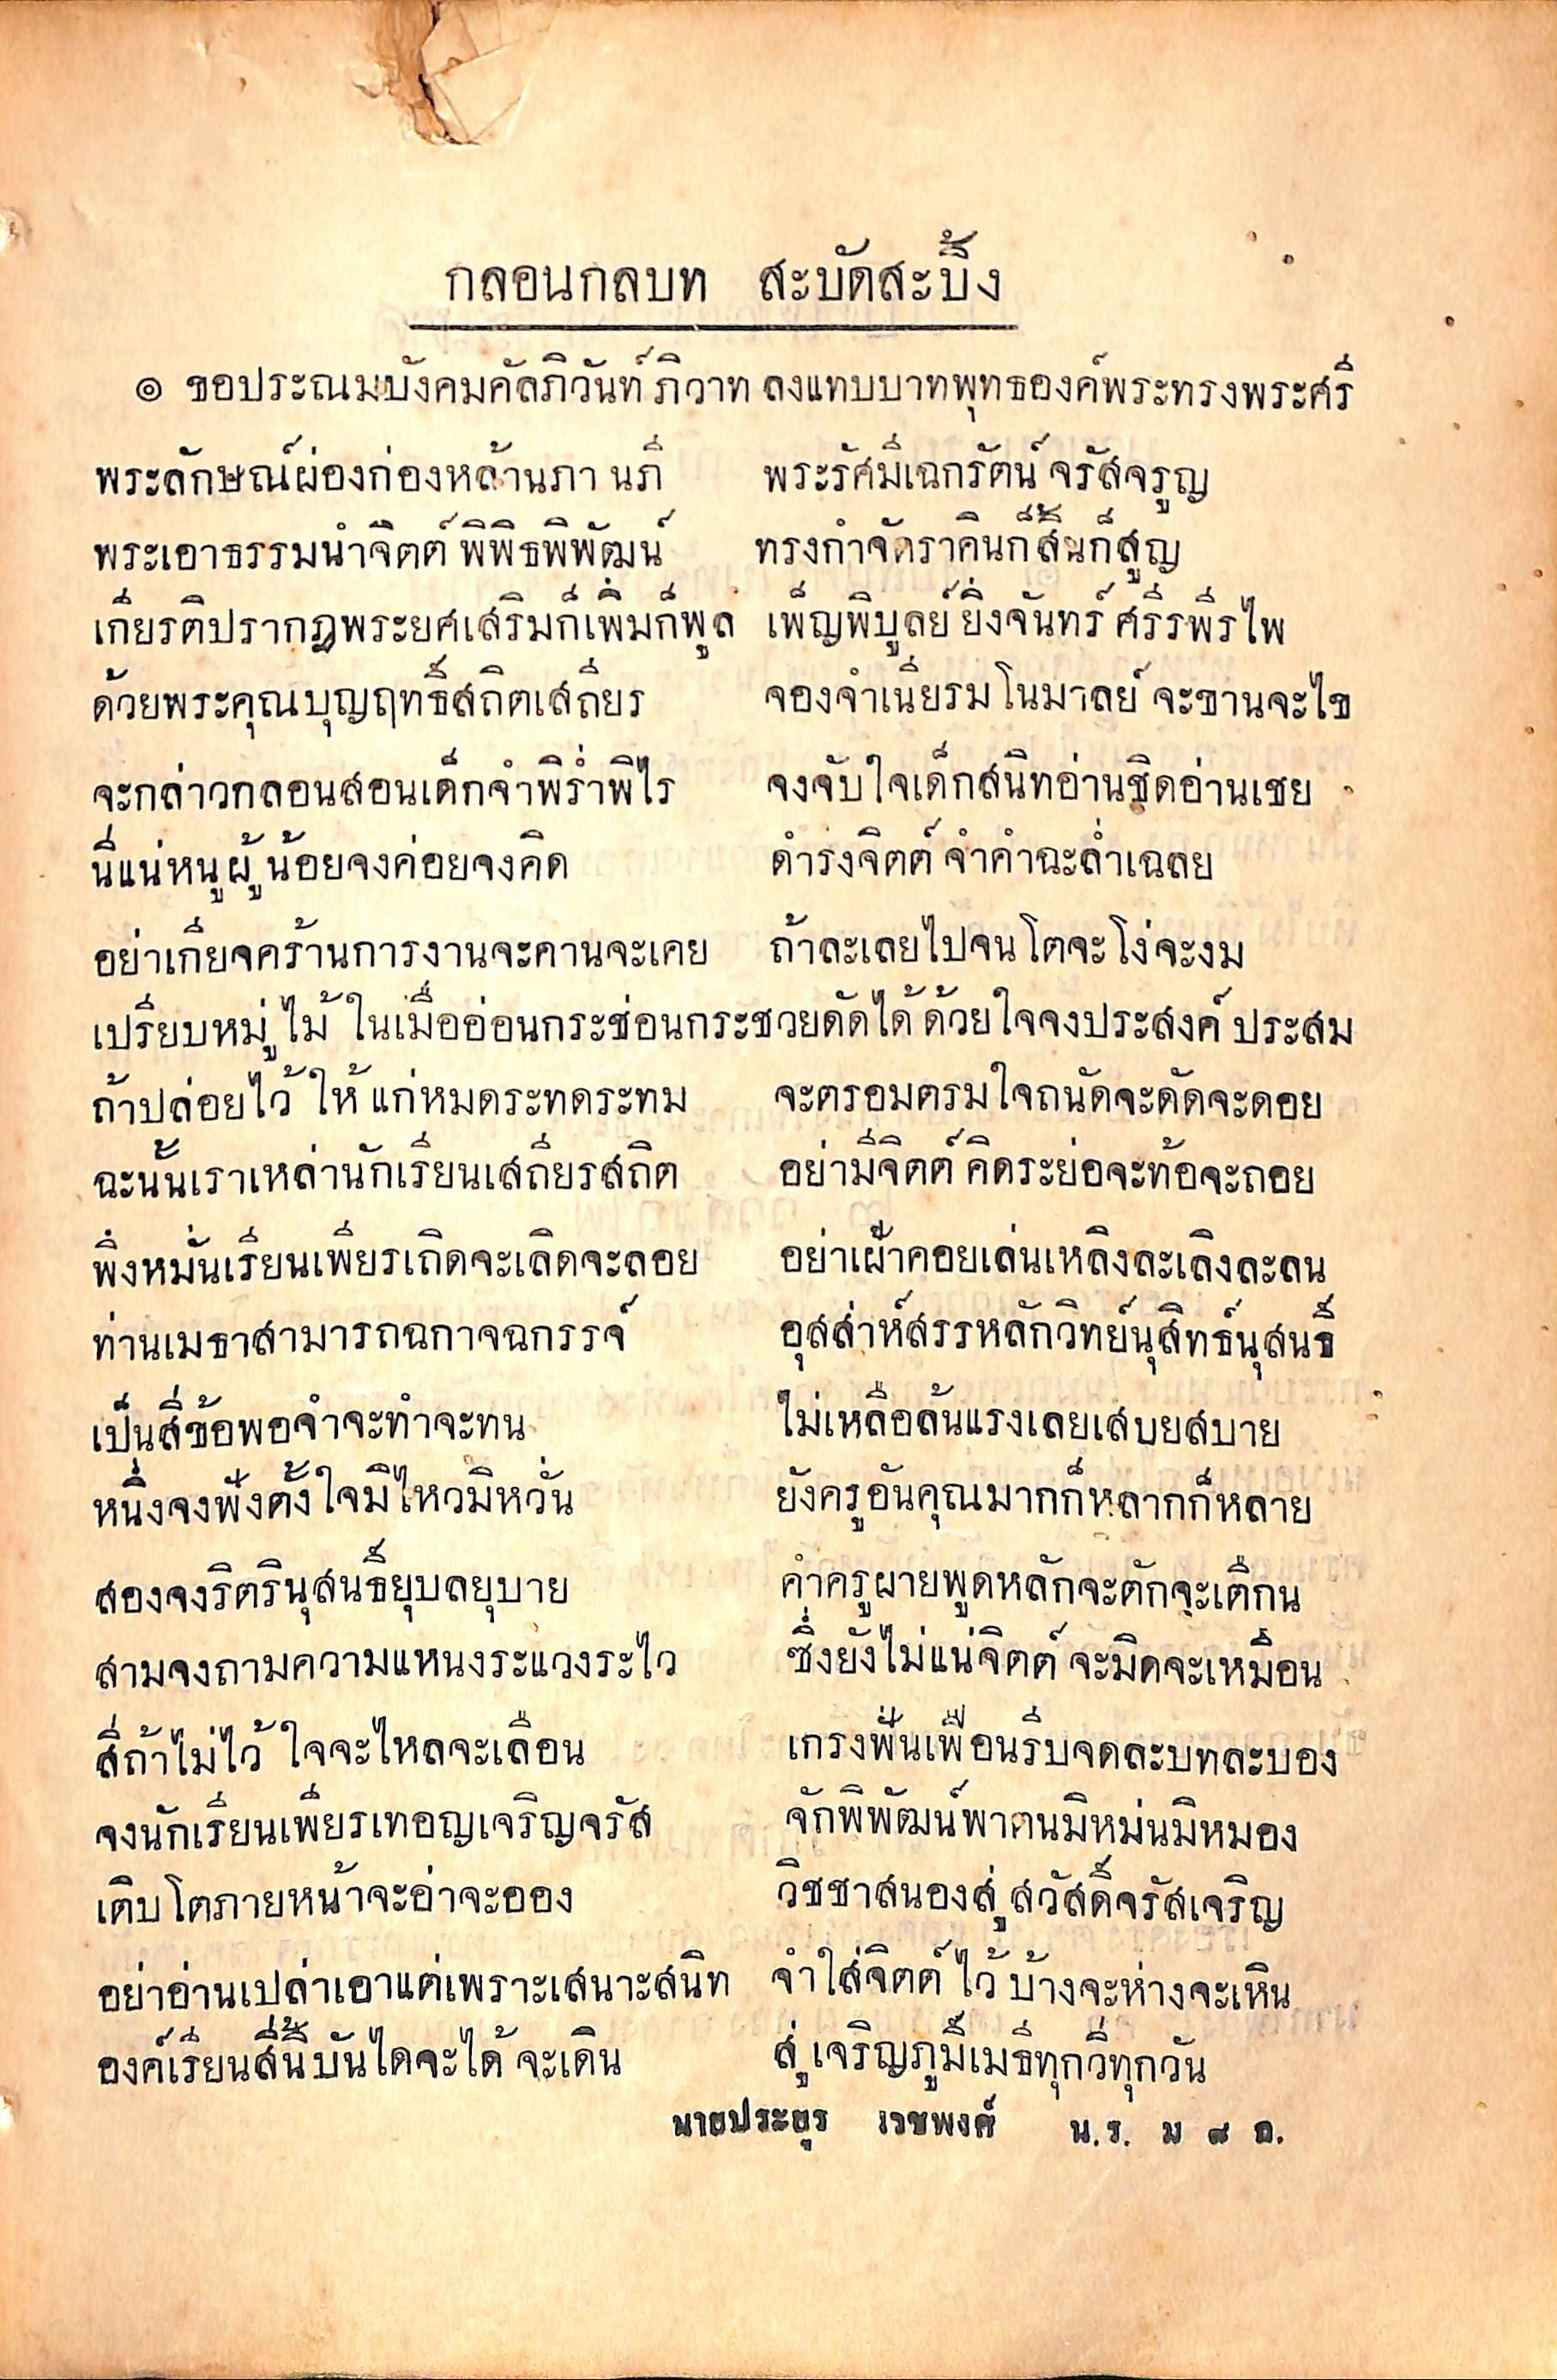 กลอนกลบท สะบัดสะบิ้ง
๏ ขอประณมบังคมคัลภิวันท์ภิวาท ลงแทบบาทพุทธองค์พระทรงพระศรี
พระลักษณ์ผ่องก่องหล้านภานภี พระรัศมีเฉกรัตน์จรัสจรูญ
พระเอาธรรมนำจิตต์พิพิธพิพัฒน์ ทรงกำจัดราคินก็สิ้นก็สูญ
เกียรติปรากฏพระยศเสริมก็เพิ่มก็พูล เพ็ญพิบูลย์ยิ่งจันทร์ศรีรพีรไพ
ด้วยพระคุณบุญฤทธิ์สถิตเสถียร จองจำเนียรมโนมาลย์จะขานจะไข
จะกล่าวกลอนสอนเด็กจำพิร่ำพิไร จงจับใจเด็กสนิทอ่านชิดอ่านเชย
นี่แน่หนูผู้น้อยจงค่อยจงคิด ดำรงจิตต์จำคำฉะล่ำเฉลย
อย่าเกียจคร้านการงานจะคานจะเคย ถ้าละเลยไปจนโตจะโง่จะงม
เปรียบหมู่ไม้ในเมื่ออ่อนกระช่อนกระชวย ดัดได้ด้วยใจจงประสงค์ประสม
ถ้าปล่อยไว้ให้แก่หมดระทดระทม จะตรอมตรมใจถนัดจะดัดจะดอย
ฉะนั้นเราเหล่านักเรียนเสถียรสถิต อย่ามีจิตต์คิดระย่อจะท้อจะถอย
พึ่งหมั่นเรียนเพียรเถิดจะเลิดจะลอย อย่าเฝ้าคอยเล่นเหลิงละเลิงละลน
ท่านเมธาสามารถฉกาจฉกรรจ์ อุสส่าห์สรรหลักวิทย์นุสิทธ์นุสนธิ์
เป็นสี่ข้อพอจำจะทำจะทน ไม่เหลือล้นแรงเลยเสบยสบาย
หนึ่งจงฟังตั้งใจมิไหวมิหวั่น ยังครูอันคุณมากก็หลากก็หลาย
สองจงริตรินุสนธิ์ยุบลยุบาย คำครูผายพูดหลักจะตักจะเตือน
สามจงถามความแหนงระแวงระไว ซึ่งยังไม่แน่จิตต์จะมิดจะเหมือน
สี่ถ้าไม่ไว้ใจจะไหลจะเลือน เกรงฟั่นเฟือนรีบจดละบทละบอง
จงนักเรียนเพียรเทอญเจริญจรัส จักพิพัฒน์พาตนมิหม่นมิหมอง
เติบโตภายหน้าจะอ่าจะออง วิชชาสนองสู่สวัสดิ์จรัสเจริญ
อย่าอ่านเปล่าเอาแต่เพราะเสนาะสนิท จำใส่จิตต์ไว้บ้างจะห่างจะเหิน
องค์เรียนสี่นี้บันไดจะได้จะเดิน สู่เจริญภูมิเมธีทุกวี่ทุกวัน
นายประยุร เวชพงศ์ น.ร. ม ๘ ก.